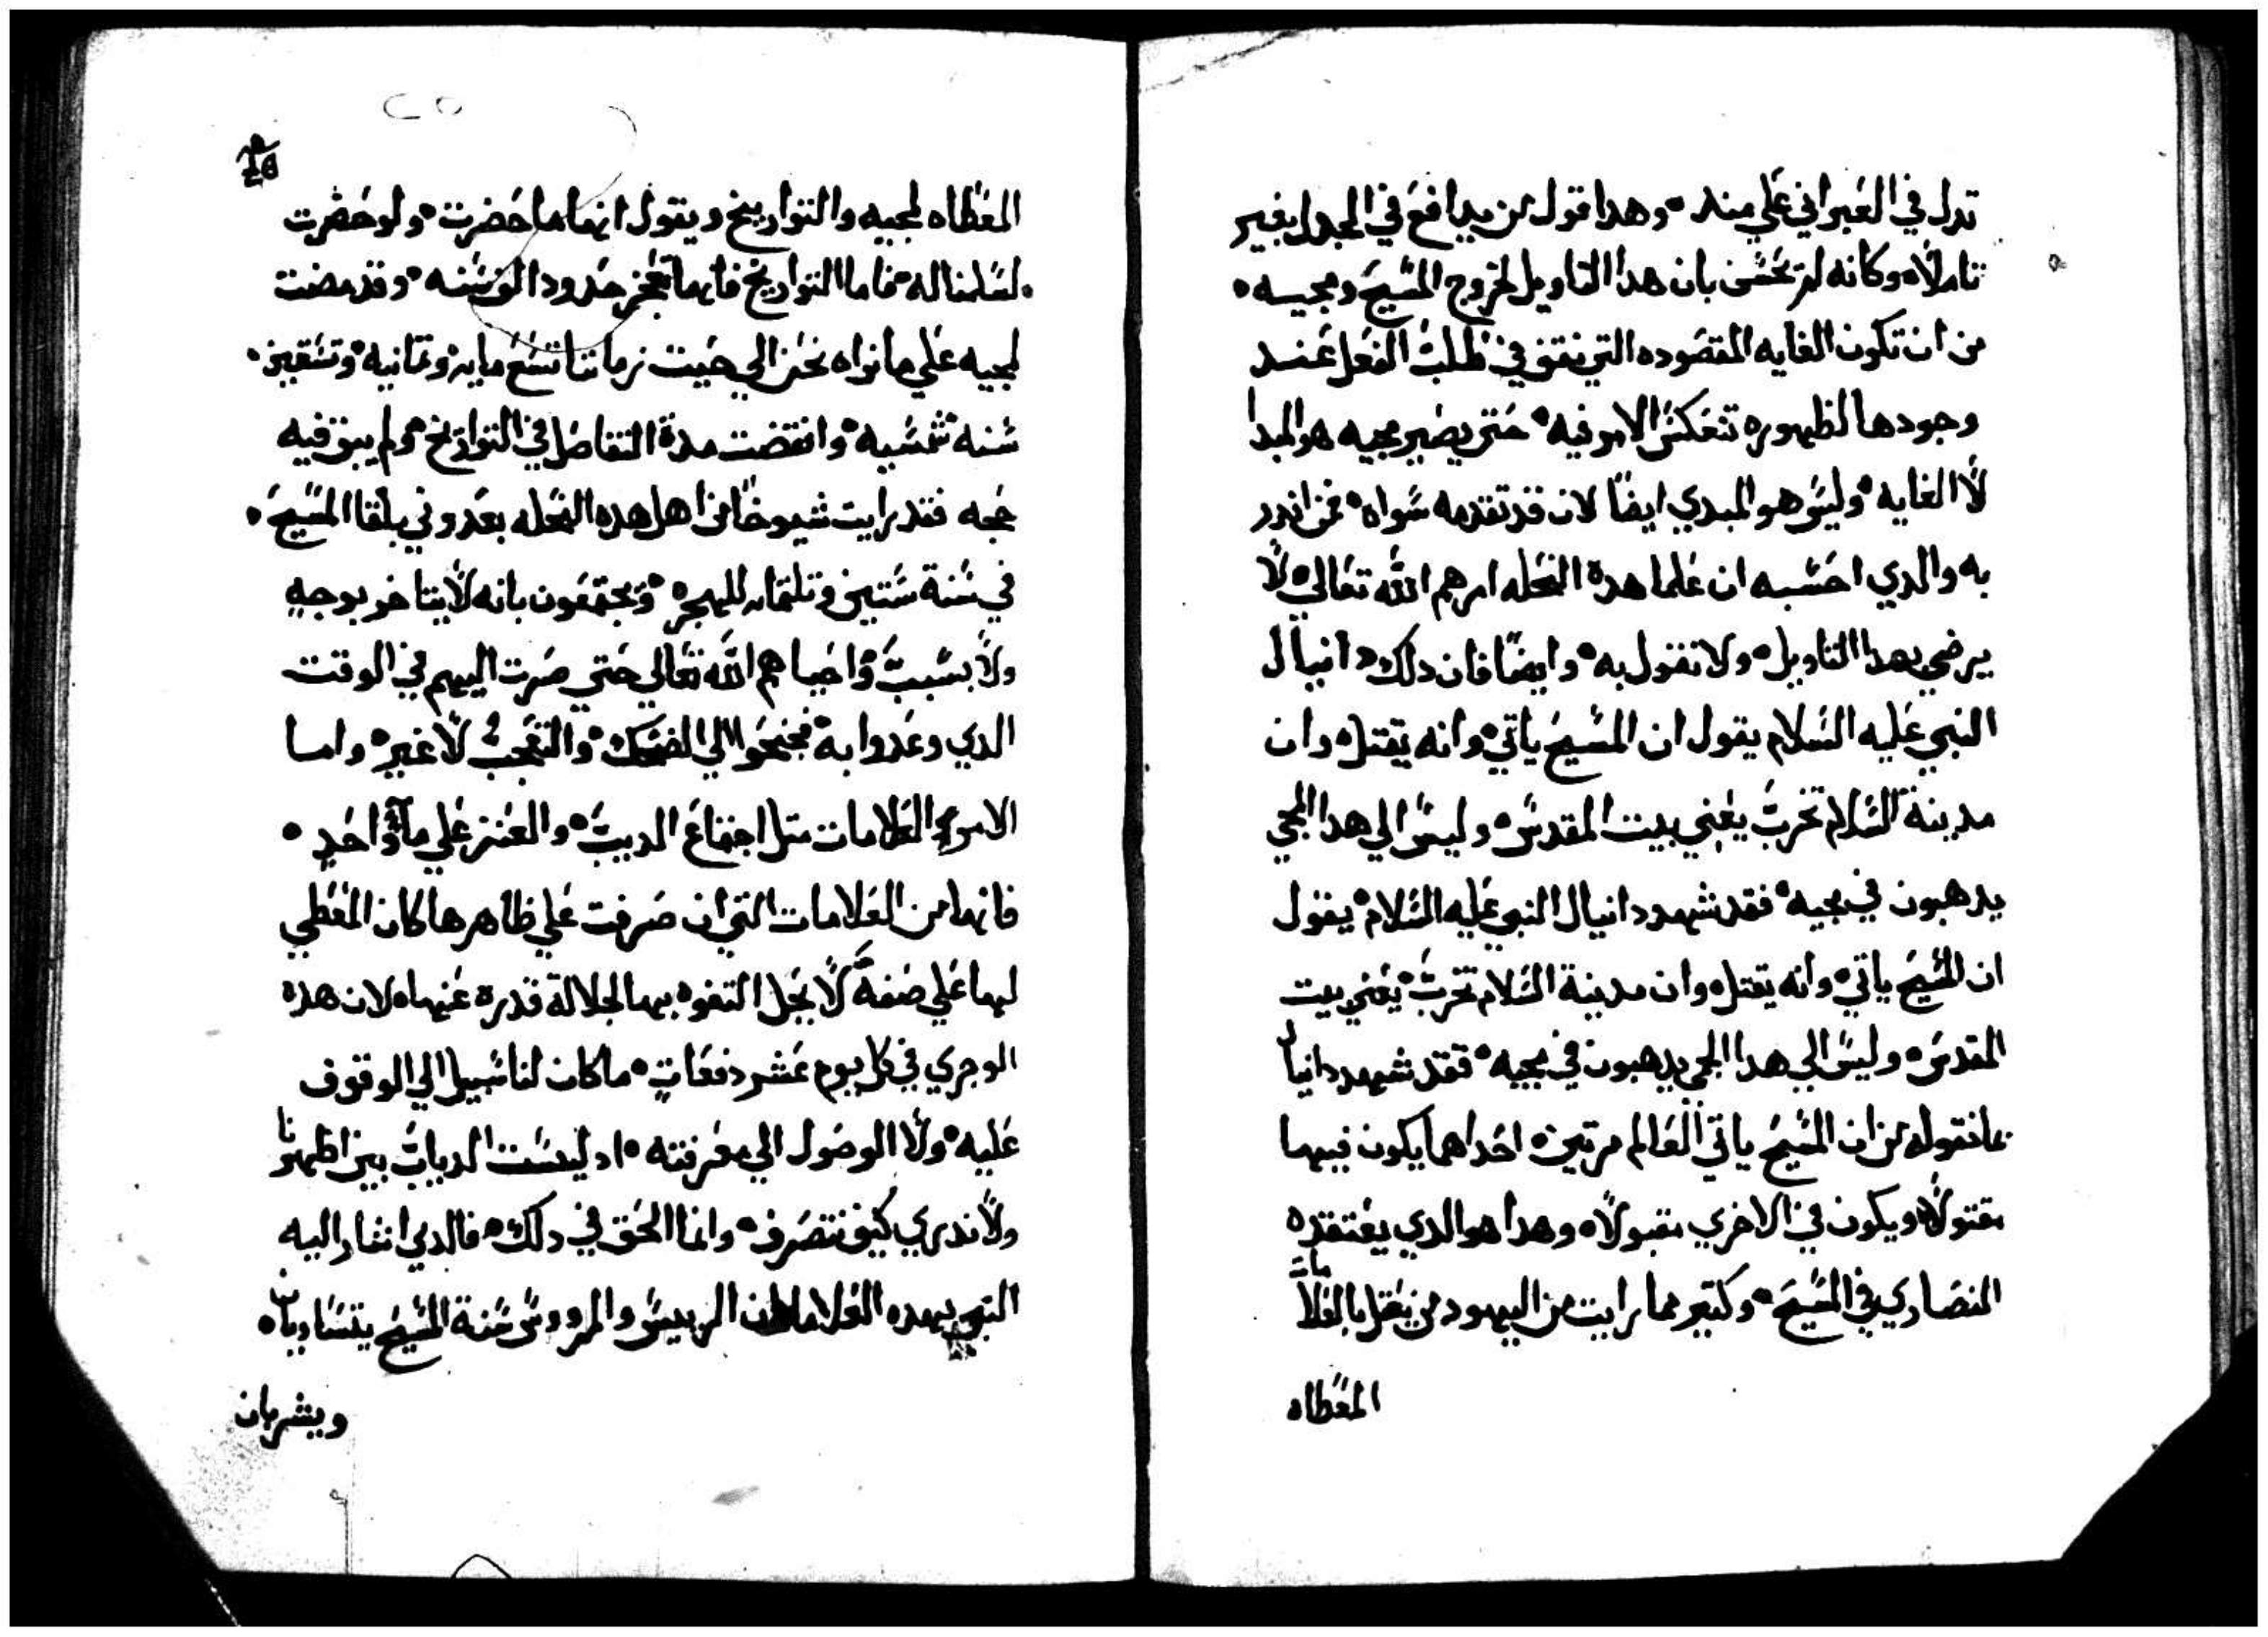 تدل في العبراني علي مند ° وهدا قول من يدافع في الجدل بغير
تاملاً ° وكانه لم يحس بان هدا التاويل لخروج المسيح ومجيه °
من ان تكون الغايه المقصوده التي نقف في طلب الفعل عند
وجودها لظهوره تنعكس الامر فيه ° حتي يصير مجيه هو المبدا
لا الغايه ° وليس هو المبدي ايضا لان قد تقدمه سواه ° فمن اندر
به والدي احسبه ان علما هده النحله ارهم الله تعالي ° لا
يرضي بهدا التاويل ° ولا تقول به ° وايضا فان دلك دانيال
النبي عليه السلام يقول ان المسيح ياتي ° وانه يقتل ° وان
مدينة السلام تخرب يعني بيت المقدس ° وليس الي هدا المجي
يدهبون في مجيه ° فقد شهد دانيال النبي عليه السلام ° يقول
ان المسيح ياتي ° وانه يقتل ° وان مدينة السلام تخرب ° يعني بيت
المقدس ° وليس الي هدا المجي يدهبون في مجيه ° فقد شهد دانيال
بما نقوله من ان المسيح ياتي العالم مرتين ° احداهما يكون فيها
مقتولاً ° ويكون في الاخري مقبولاً ° وهدا هو الدي يعتقده
النصاري في المسيح ° وكتير مما رايت من اليهود من يعقل بالعلامات
المعطاه
٢٥
المعطاه لمجيه والتواريخ ويقول انها ما حضرت ° ولو حضرت
لسلمنا له ° فاما التواريخ فانها حدود الف سنه ° وقد مضت
لمجيه علي ما نراه نحن الي حيت زماننا تسع مايه ° وتمانيه ° وتسعين °
سنه شمسيه ° وانقضت مدة التفاضل في التواريخ ° ولم يبق فيه
حجه فقد رايت شيوخا من اهل هده النحله بعدوني بلقا المسيح °
في سنة ستين وتلتمايه للهجره ° ويجتمعون بانه لا يتاخر بوجه
ولا بسبب ° واحياهم الله تعالي حتي صرت اليهم في الوقت
الدي وعدوا به ° فجنحوا الي الضحك ° والتعجب لا غير ° واما
الامور العلامات متل اجتماع الديب ° والعنز علي ماء واحد °
فانها من العلامات التي ان صرفت علي ظاهرها كان المعطي
لها علي صفة لا يجل التفوه بها لجلالة قدره عنها ° لان هده
الو جري في كل يوم عشر دفعات ° ما كان لنا سبيل الي الوقوف
عليه ° ولا الوصول الي معرفته ° اد ليست الدياب بين اظهرنا
ولا ندري كيف تتصرف ° وانما الحق في دلك ° فالدي اشار اليه
النبي بهده العلامات ان الرييس والمرووس سنة المسيح يتساويان °
ويشربان